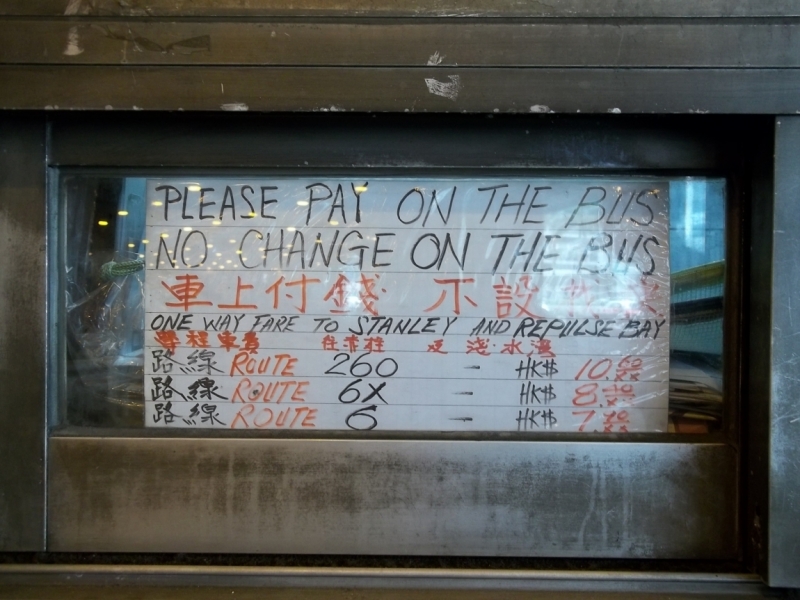 PLEASE PAY ON THE BUS
NO CHANGE ON THE BUS
車上付錢 不設
ONE WAY FARE TO STANLEY AND REPULSE BAY
單程車費 往赤柱 及 淺水灣
路線 ROUTE 260 - HK$ 10.60
路線 ROUTE 6X - HK$
路線 ROUTE 6 - HK$